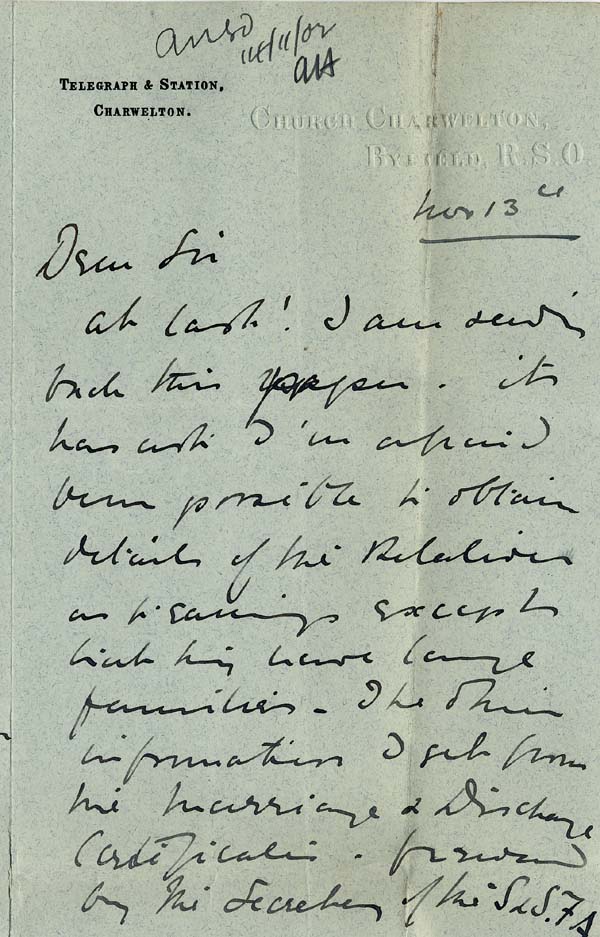 ansd
14/11/02
TELEGRAPH & STATION,
CHARWELTON.
CHURCH CHARWELTON,
BYFIELD, R.S.O.
Nov 13th
Dear Sir
at last! I am sending
back this paper. its
has not I'm afraid
been possible to obtain
details of the Relatives
as to earnings except
that they have large
families - The other
information I got from
the marriage & Discharge
Certificates - forward
by the Secretary of the S&S.F.A